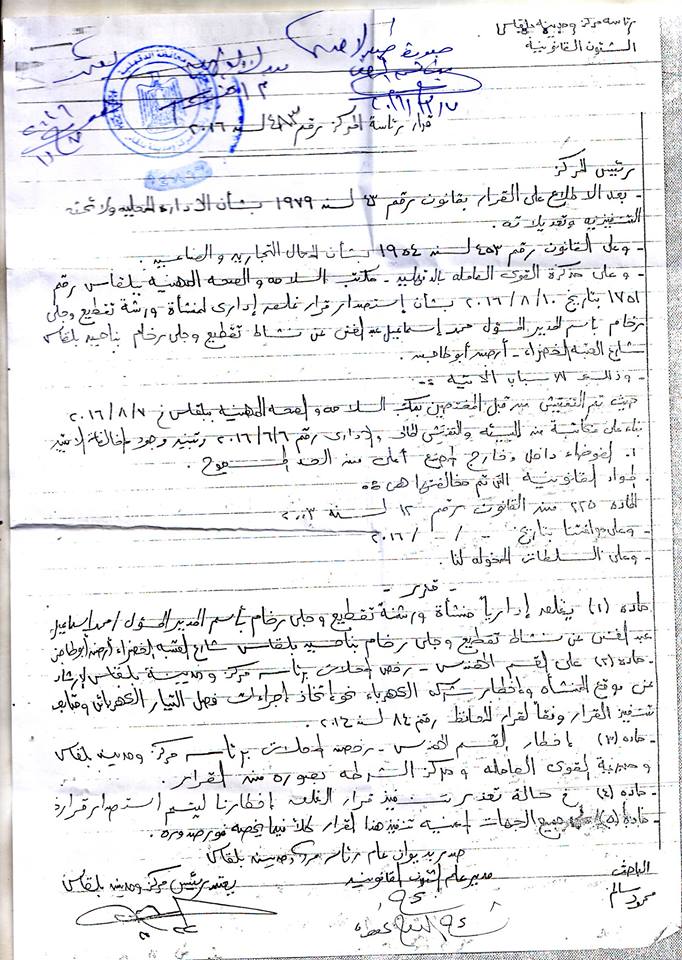 رئاسة مركز ومدينة بلقاس
الشئون القانونية
صورة طبق الأصل
قرار رئاسة المركز رقم لسنة ٢٠١٦
رئيس المركز
- بعد الاطلاع على القرار بقانون رقم ٤٣ لسنة ١٩٧٩ بشأن الإدارة المحلية ولائحته
التنفيذية وتعديلاته .
- وعلى القانون رقم ٤٥٣ لسنة ١٩٥٤ بشأن المحال التجارية والصناعية .
- وعلى مذكرة القوى العاملة بالدقهلية - مكتب السلامة والصحة المهنية ببلقاس رقم
١٧٥١ بتاريخ ٢٠١٦/٨/١٠ بشأن استصدار قرار غلق إدارى لمنشأة ورشة تقطيع وجلى
رخام باسم المدير المسئول محمد إسماعيل عبد الغنى عن نشاط تقطيع وجلى رخام بناحية بلقاس
شارع العتبة الخضراء - أرض أبو طاحين .
- وذلك للأسباب الآتية :-
حيث تم التفتيش من قبل المختصين بمكتب السلامة والصحة المهنية ببلقاس فى ٢٠١٦/٨/٧
بناء على معاينة من البيئة والتفتيش المالى والإدارى رقم ٢٠١٦/٦/٦ وتبين وجود مخالفة
١. الضوضاء داخل وخارج الموقع أعلى من الحد المسموح .
- المواد القانونية التى تم مخالفتها هى :-
المادة ٢٢٥ من القانون رقم ١٢ لسنة ٢٠٠٣
- وعلى موافقتنا بتاريخ - / - / ٢٠١٦
- وعلى السلطات المخولة لنا .
- قرر -
مادة (١) يغلق إدارياً منشأة ورشة تقطيع وجلى رخام باسم المدير المسئول / محمد إسماعيل
عبد الغنى عن نشاط تقطيع وجلى رخام بناحية بلقاس شارع العتبة الخضراء أرض أبو طاحين
- مادة (٢) على القسم الهندسى - رخص المحلات برئاسة مركز ومدينة بلقاس لإرشاد
عن موقع المنشأة وإخطار شركة الكهرباء نحو اتخاذ إجراءات فصل التيار الكهربائى ومتابعة
تنفيذ القرار وفقاً لقرار المحافظ رقم ٨٤ لسنة
- مادة (٣) إخطار القسم الهندسى - رخص المحلات برئاسة مركز ومدينة بلقاس
ومديرية القوى العاملة ومركز الشرطة بصورة من القرار .
- مادة (٤) فى حالة تعذر تنفيذ قرار الغلق إخطارنا ليتم استصدار قرار
- مادة (٥) على جميع الجهات المعنية تنفيذ هذا القرار كلا فيما يخصه فور صدوره .
صدر بديوان عام رئاسة مركز ومدينة بلقاس
الباحث مدير عام الشئون القانونية يعتمد رئيس مركز ومدينة بلقاس
محمود سالم